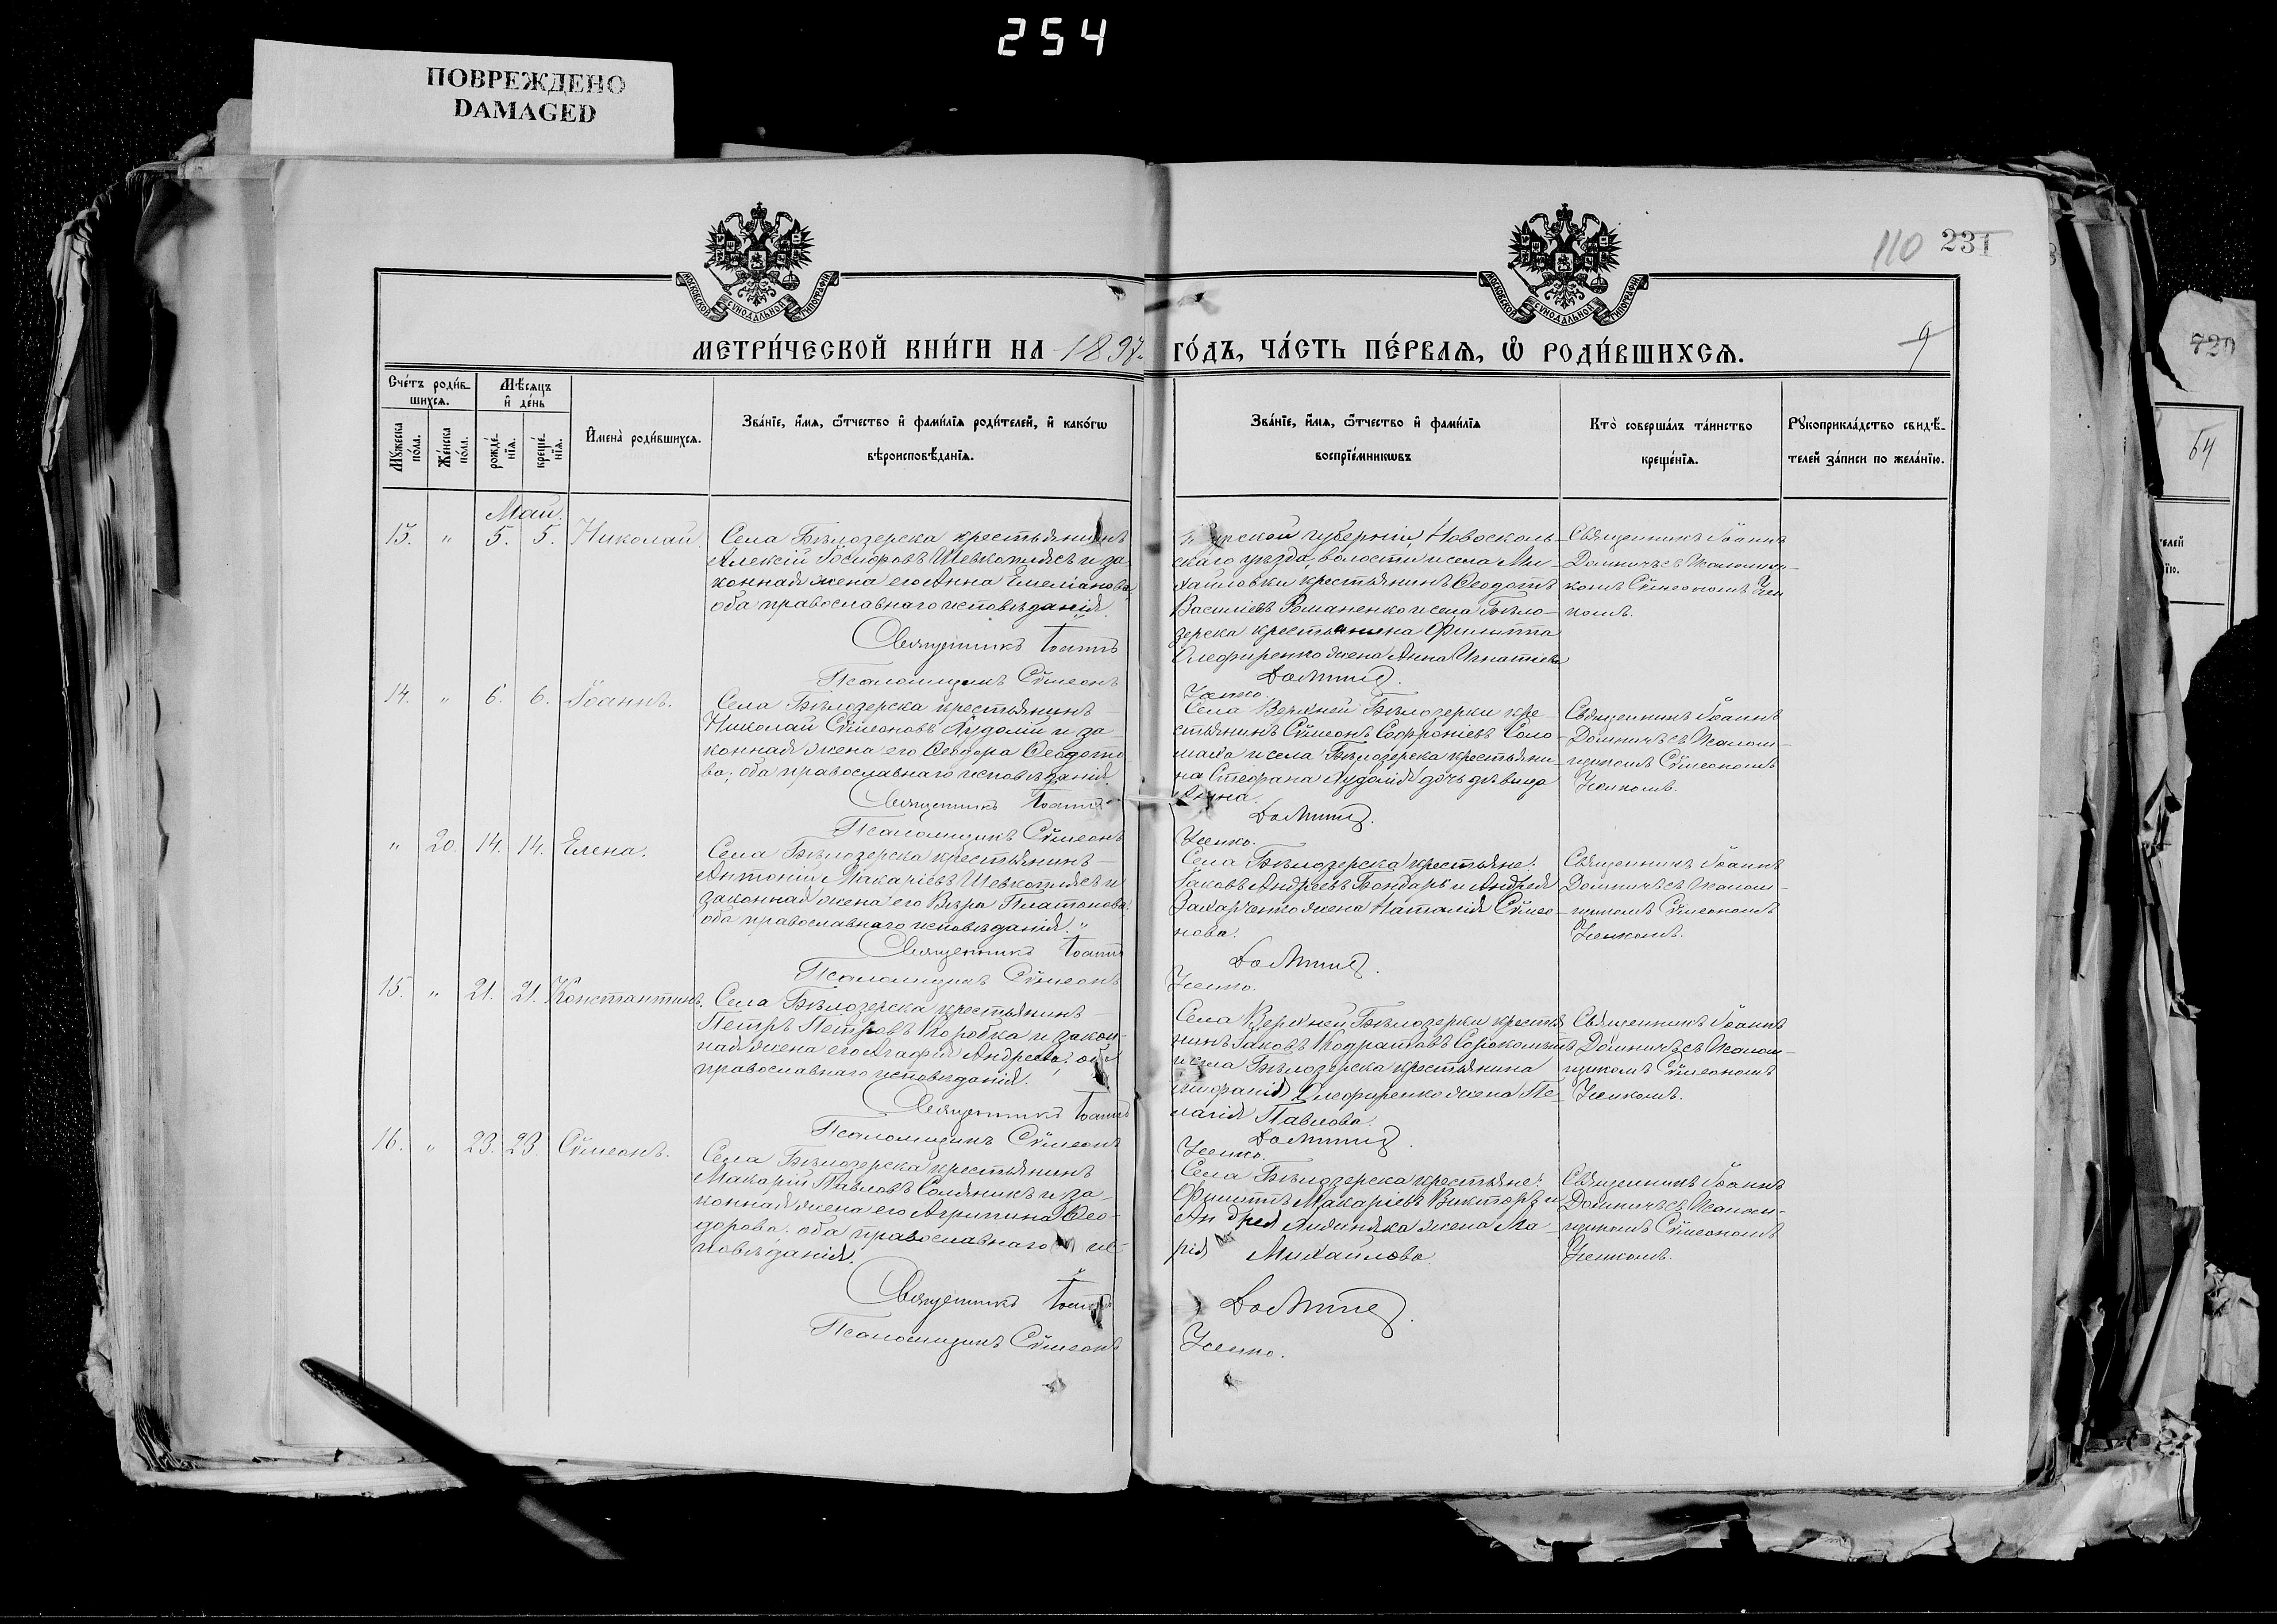 254
ПОВРЕЖДЕНО
DAMAGED
110 231
9
МОСКОВСКОЙ СѴНОДАЛЬНОЙ ТИПОГРАФІИ
МОСКОВСКОЙ СѴНОДАЛЬНОЙ ТИПОГРАФІИ
МЕТРИ́ЧЕСКОЙ КНИ́ГИ НА 1897 ГО́ДЪ, ЧА́СТЬ ПЕ́РВАЯ, Ѿ РОДИ́ВШИХСЯ.
Сче́тъ роди́в-
шихся.
Мꙋжеска по́ла.
Же́нска по́ла.
Мѣ́сяцъ
и҆ де́нь
рожде́-
нїя.
креще́-
нїя.
И҆мена̀ роди́вшихся.
Зва́нїе, и҆́мя, ѻ҆́тчество и҆ фами́лїя роди́телей, и҆ како́гѡ
вѣроисповѣ́данїя.
Зва́нїе, и҆́мя, ѻ҆́тчество и҆ фами́лїя
воспрїе́мникѡвъ
Кто̀ соверша́лъ та́инство
креще́нїя.
Рꙋкоприкла́дство свидѣ́-
телей за́писи по жела́нїю.
Май.
13. " 5. 5. Николай.
Села Бѣлозерска крестьянинъ
Алексій Іосифовъ Шевкоплясъ и за-
конная жена его Анна Емеліанова,
оба православнаго исповѣданія.
Священникъ Іоаннъ
Псаломщикъ Сѵмеонъ
губерніи, Новосколь-
скаго уѣзда, волости и села Ми-
хайловки крестьянинъ Ѳеодотъ
Василіевъ Романенко и села Бѣло-
зерска крестьянина Филиппа
Олефиренко жена Анна Игнатіева
Усенко.
Священникъ Іоаннъ
Домничъ съ псаломщи-
комъ Сѵмеономъ Усен-
комъ.
14. " 6. 6. Іоаннъ.
Села Бѣлозерска крестьянинъ
Николай Сѵмеоновъ Худолій и за-
конная жена его Ѳеодора Ѳеодото-
ва; оба православнаго исповѣданія.
Священникъ Іоаннъ
Псаломщикъ Сѵмеонъ
Села Верхней Бѣлозерки кре-
стьянинъ Сѵмеонъ Софроніевъ Соло-
маха и села Бѣлозерска крестьяни-
на Стефана Худолія дочь дѣвица
Анна.
Усенко.
Священникъ Іоаннъ
Домничъ съ псалом-
щикомъ Сѵмеономъ
Усенкомъ.
" 20. 14. 14. Елена.
Села Бѣлозерска крестьянинъ
Антоній Макаріевъ Шевкоплясъ и
законная жена его Вѣра Платонова
оба православнаго исповѣданія. "
Священникъ Іоаннъ
Псаломщикъ Сѵмеонъ
Села Бѣлозерска крестьяне:
Іаковъ Андреевъ Бондарь и Андрея
Захарченко жена Наталія Сѵмео-
нова.
Усенко.
Священникъ Іоаннъ
Домничъ съ псалом-
щикомъ Сѵмеономъ
Усенкомъ.
15. " 21. 21. Константинъ.
Села Бѣлозерска крестьянинъ
Петръ Петровъ Коробка и закон-
ная жена его Агафія Андреева; оба
православнаго исповѣданія.
Священникъ Іоаннъ
Псаломщикъ Сѵмеонъ
Села Верхней Бѣлозерки крестья-
нинъ Іаковъ Кодратовъ
и села Бѣлозерска крестьянина
Олефиренко жена Пе-
лагія Павлова.
Усенко.
Священникъ Іоаннъ
Домничъ съ псалом-
щикомъ Сѵмеономъ
Усенкомъ.
16. " 23. 23. Сѵмеонъ.
Села Бѣлозерска крестьянинъ
Макарій Павловъ Соляникъ и за-
конная жена его Агрипина Ѳео-
дорова; оба православнаго ис-
повѣданія.
Священникъ Іоаннъ
Псаломщикъ Сѵмеонъ
Села Бѣлозерска крестьяне:
Филиппъ Макаріевъ и
Андрея жена Ма-
рія Михайлова.
Усенко.
Священникъ Іоаннъ
Домничъ съ псалом-
щикомъ Сѵмеономъ
Усенкомъ.
720
64